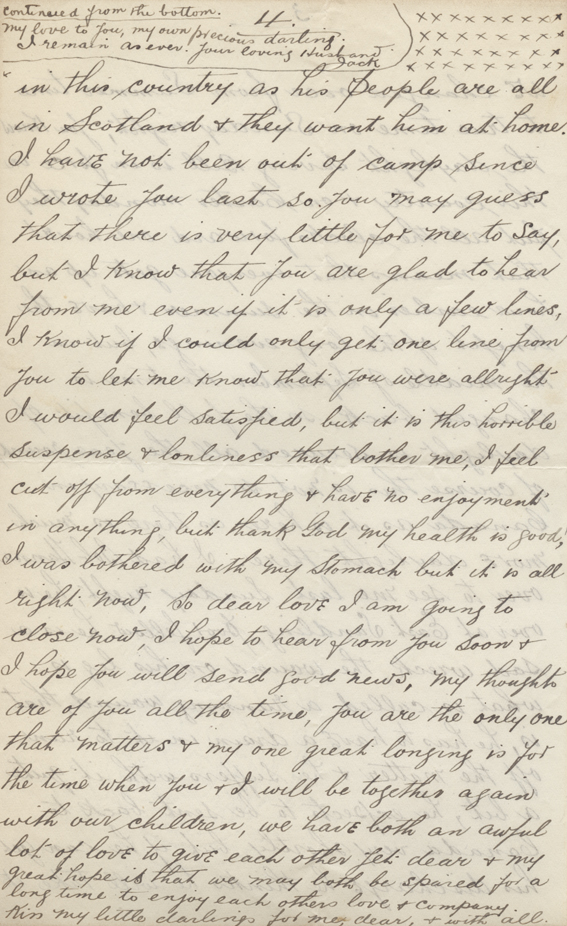 continued from the bottom.
4.
my love to you, my own precious darling.
I remain as ever. Your loving Husband
Jack
x x x x x x x x x x x
x x x x x x x x x x x
x x x x x x x x x x x
x x x x x x x x x x x
in this country as his people are all
in Scotland & they want him at home.
I have not been out of camp since
I wrote you last so you may guess
that there is very little for me to say,
but I know that you are glad to hear
from me even if it is only a few lines,
I know if I could only get one line from
you to let me know that you were allright
I would feel satisfied, but it is this horrible
suspense & lonliness that bother me, I feel
cut off from everything & have no enjoyment
in anything, but thank God my health is good,
I was bothered with my stomach but it is all
right now, So dear love I am going to
close now, I hope to hear from you soon &
I hope you will send good news, my thoughts
are of you all the time, you are the only one
that matters & my one great longing is for
the time when you & I will be together again
with our children, we have both an awful
lot of love to give each other yet dear & my
great hope is that we may both be spared for a
long time to enjoy each others love & company.
Kiss my little darlings for me, dear, & with all.